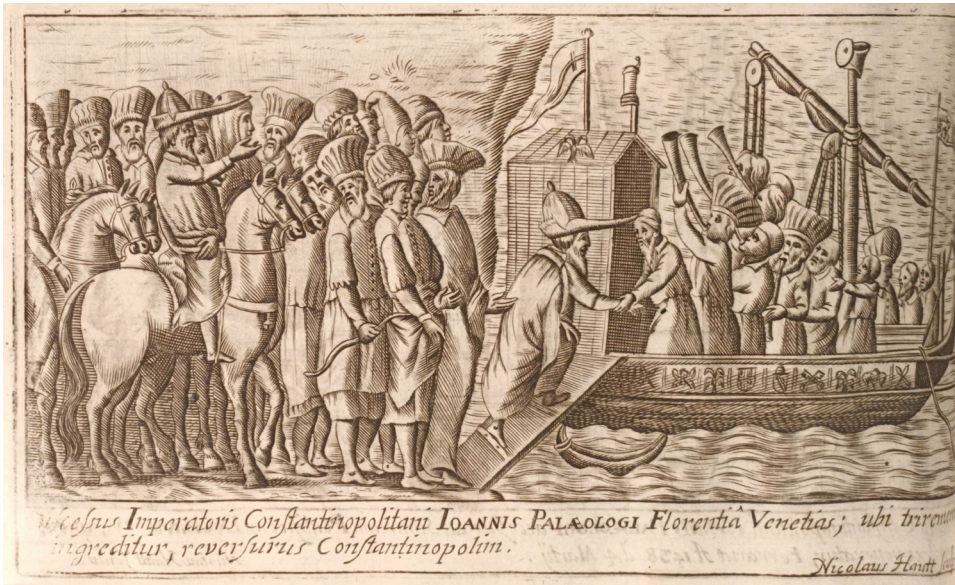 Discessus Imperatoris Constantinopolitani IOANNIS PALÆOLOGI Florentiâ Venetias; ubi triremem
ingreditur, reversurus Constantinopolim.
Nicolaus Hautt